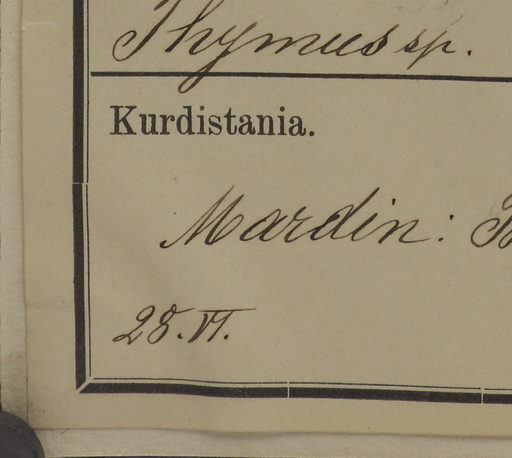 Thymus sp.
Kurdistania.
Mardin:
28. VI.